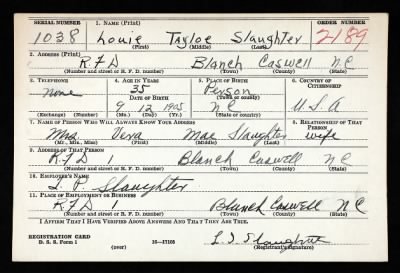 SERIAL NUMBER 1. NAME (Print) ORDER NUMBER
1038 Louie Tayloe Slaughter 2189
(First) (Middle) (Last)
2. ADDRESS (Print)
RFD Blanch Caswell NC
(Number and street or R. F. D. number) (Town) (County) (State)
3. TELEPHONE 4. AGE IN YEARS 5. PLACE OF BIRTH 6. COUNTRY OF CITIZENSHIP
None 35 Person
DATE OF BIRTH (Town or county)
9 12 1905 NC U.S.A
(Exchange) (Number) (Mo.) (Day) (Yr.) (State or country)
7. NAME OF PERSON WHO WILL ALWAYS KNOW YOUR ADDRESS 8. RELATIONSHIP OF THAT PERSON
Mrs. Vera Mae Slaughter wife
(Mr., Mrs., Miss) (First) (Middle) (Last)
9. ADDRESS OF THAT PERSON
RFD 1 Blanch Caswell NC
(Number and street or R. F. D. number) (Town) (County) (State)
10. EMPLOYER'S NAME
Slaughter
11. PLACE OF EMPLOYMENT OR BUSINESS
RFD 1 Blanch Caswell NC
(Number and street or R. F. D. number) (Town) (County) (State)
I AFFIRM THAT I HAVE VERIFIED ABOVE ANSWERS AND THAT THEY ARE TRUE.
REGISTRATION CARD
D. S. S. Form 1 (over) 16—17105 L. T. Slaughter
(Registrant's signature)